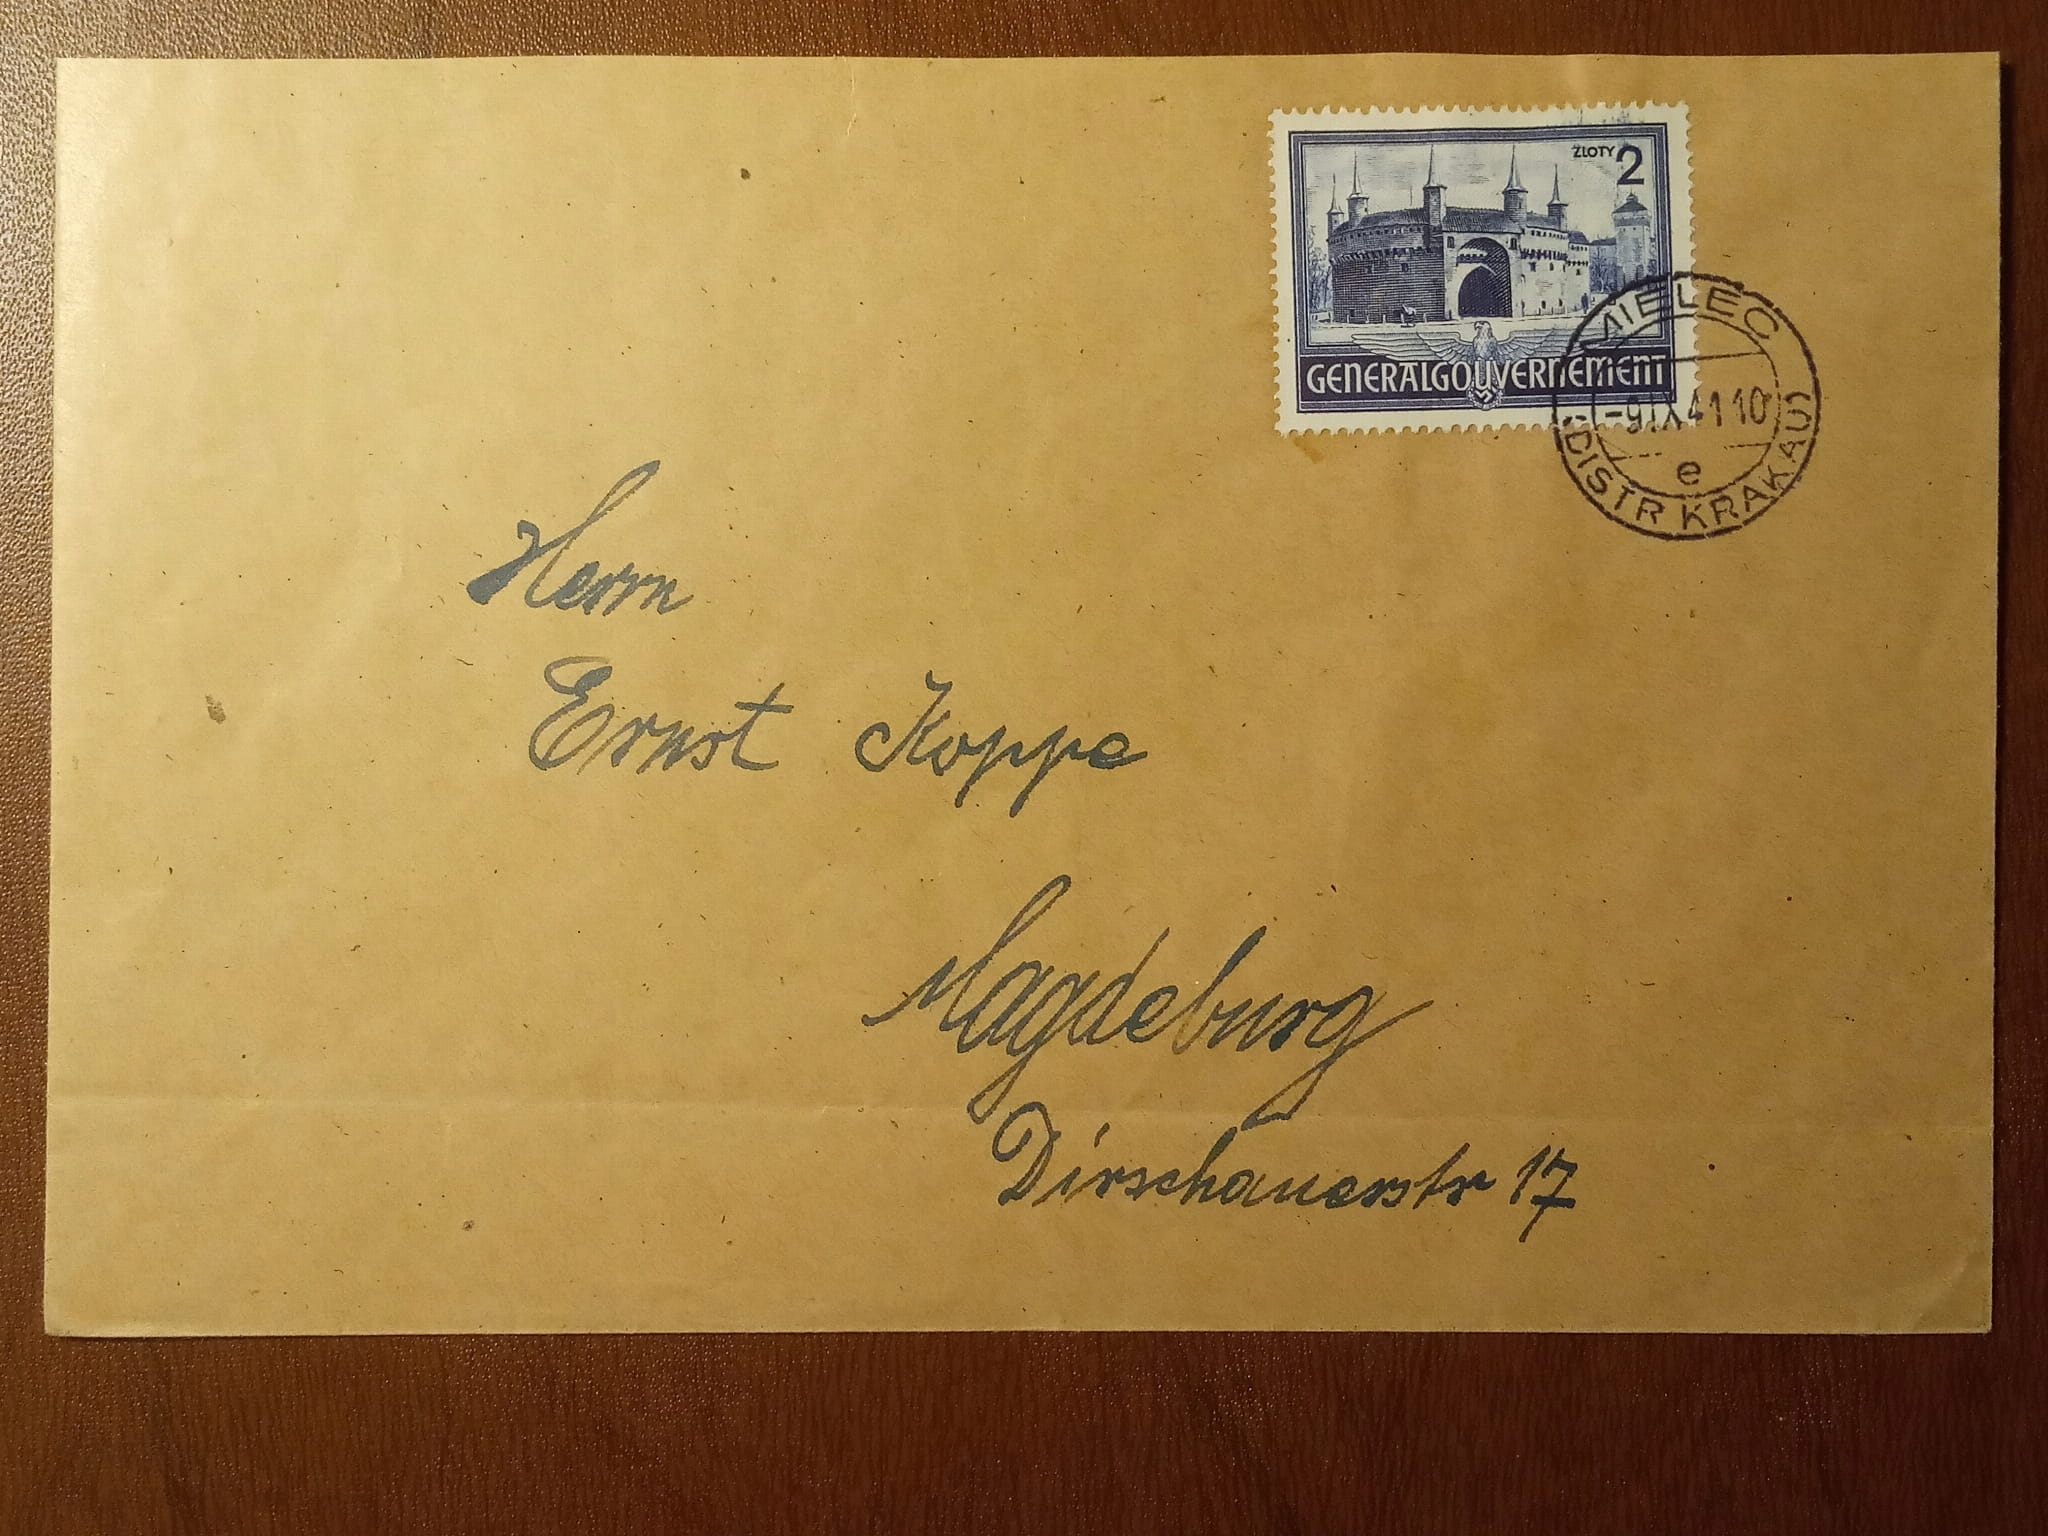 ZLOTY 2
GENERALGOUVERNEMENT
MIELEC
-9.IX.41 10
e
(DISTR KRAKAU)
Herrn
Ernst Koppe
Magdeburg
Dirschauerstr 17